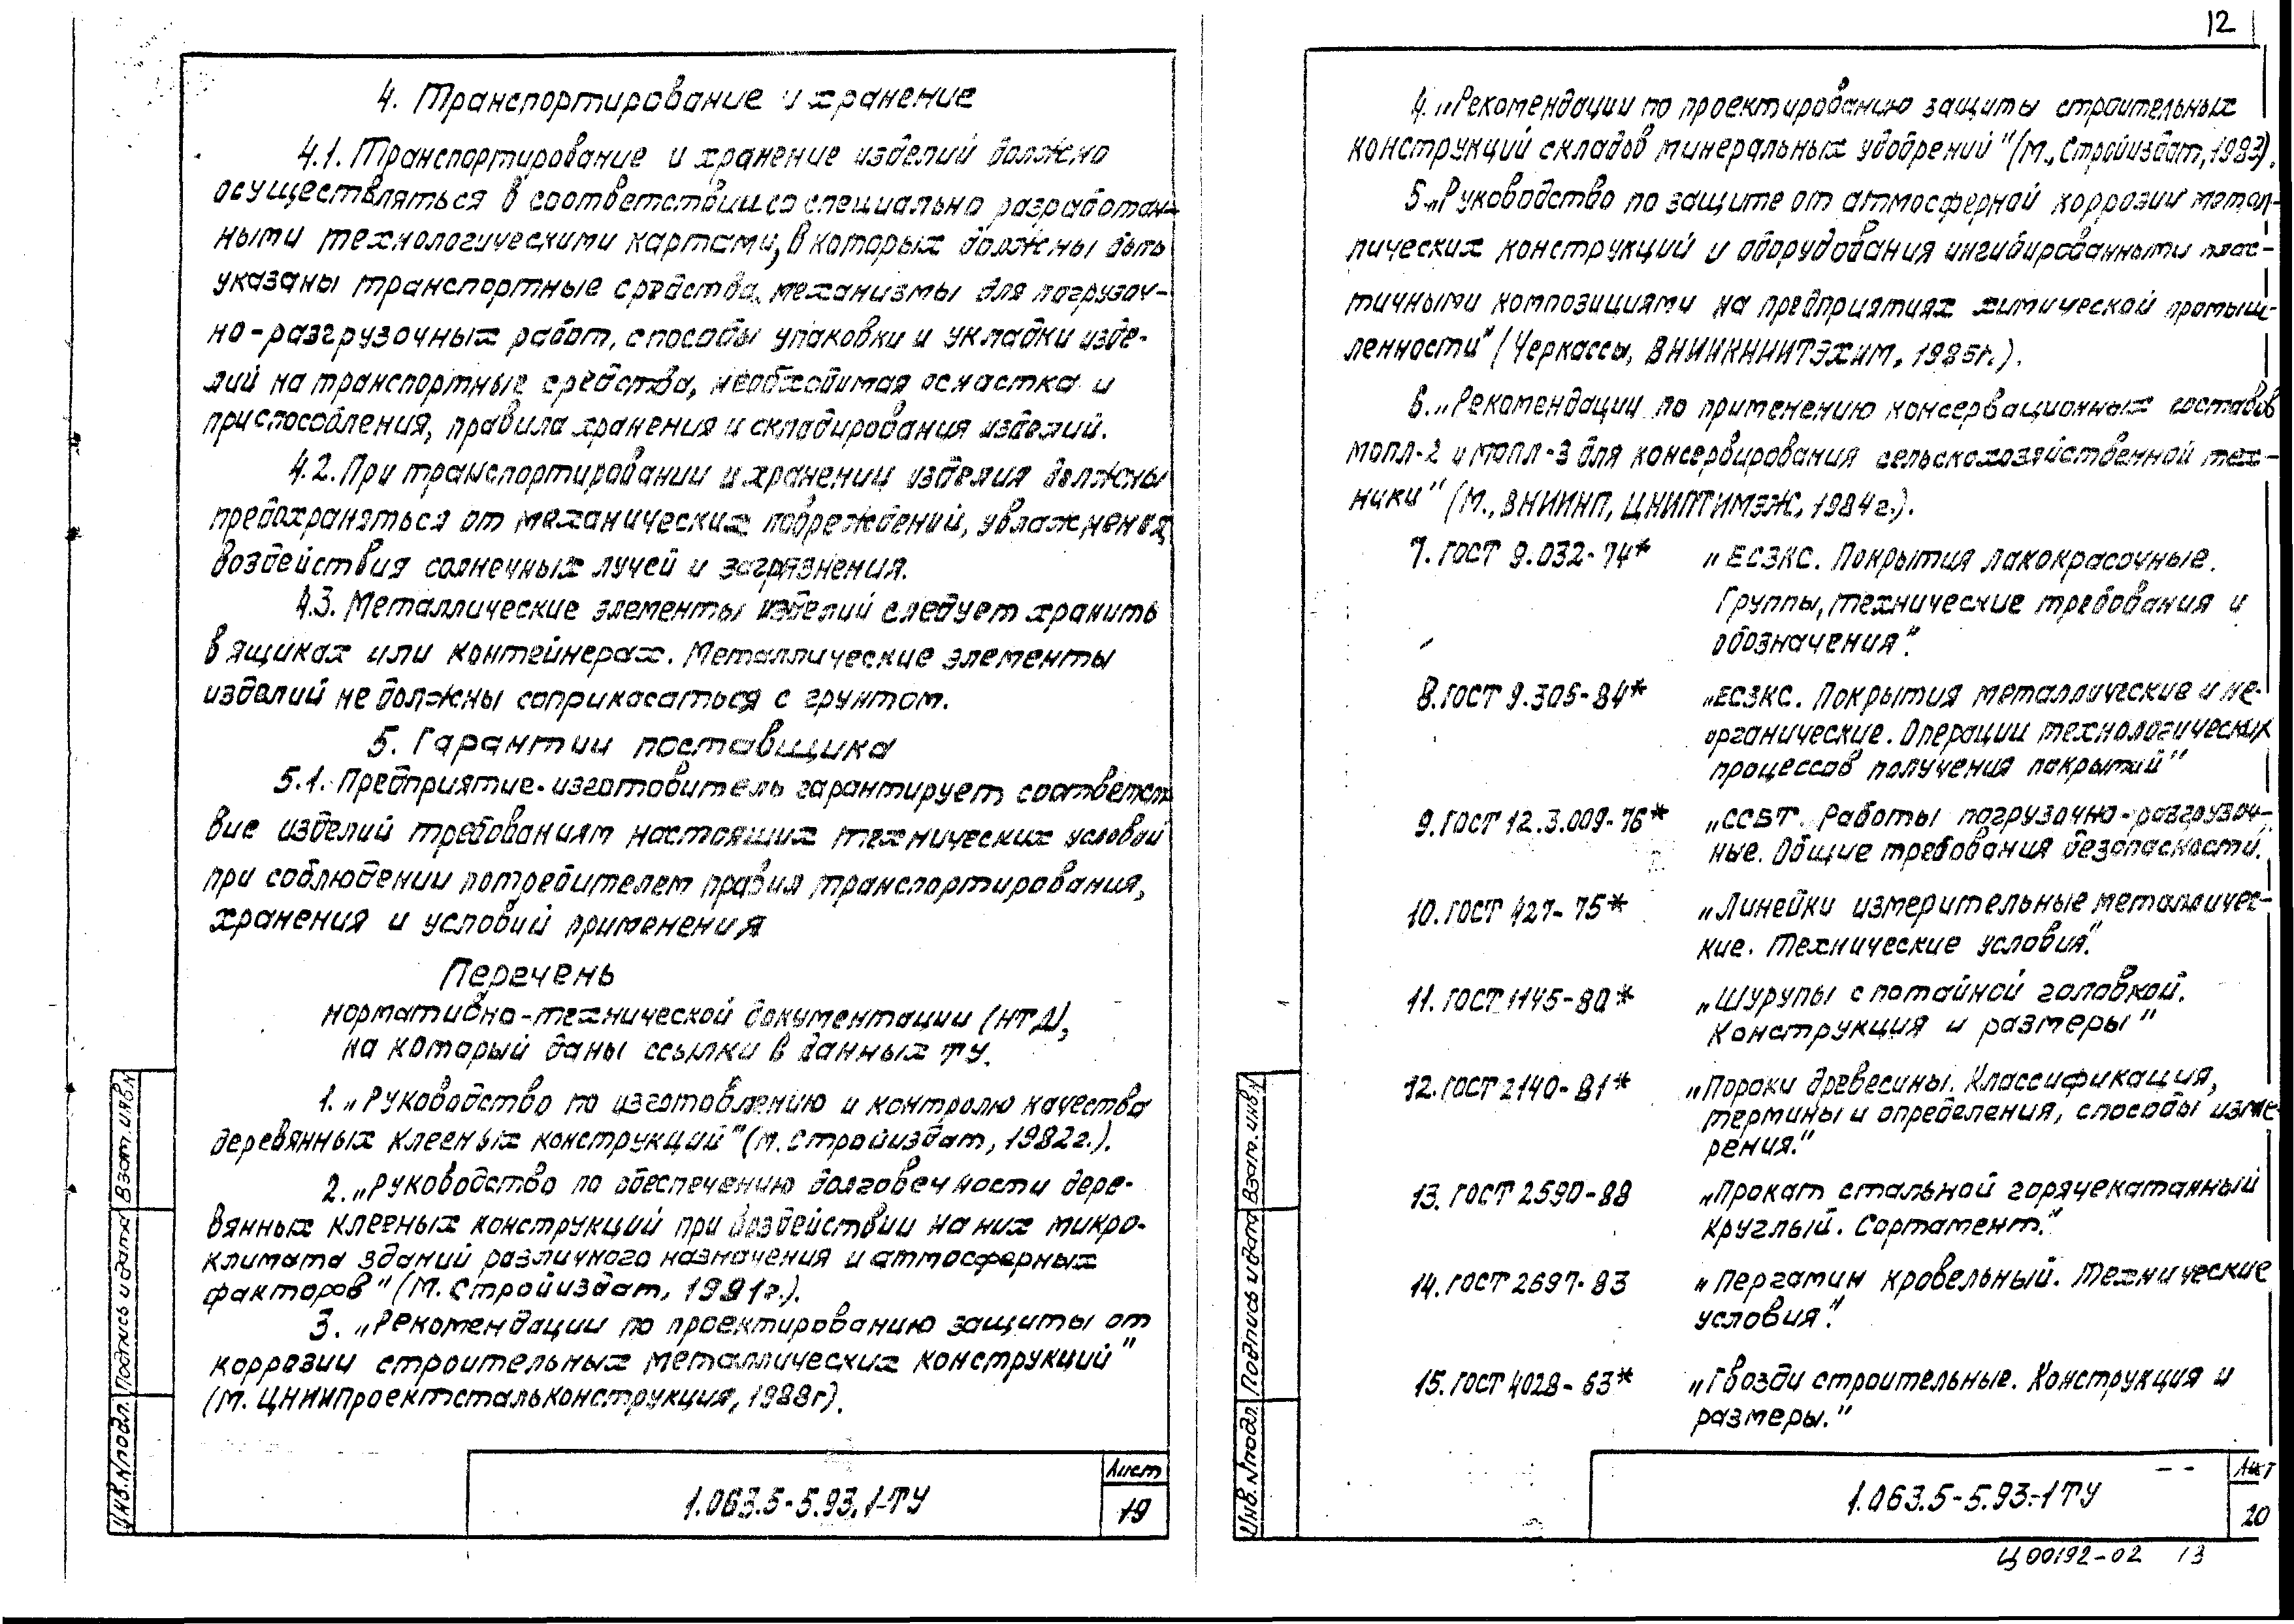 4. Транспортирование и хранение
4.1. Транспортирование и хранение изделий должно
осуществляться в соответствии со специально разработан-
ными технологическими картами, в которых должны быть
указаны транспортные средства, механизмы для погрузоч-
но-разгрузочных работ, способы упаковки и укладки изде-
лий на транспортные средства, необходимая оснастка и
приспособления, правила хранения и складирования изделий.
4.2. При транспортировании и хранении изделия должны
предохраняться от механических повреждений, увлажнения,
воздействия солнечных лучей и загрязнения.
4.3. Металлические элементы изделий следует хранить
в ящиках или контейнерах. Металлические элементы
изделий не должны соприкасаться с грунтом.
5. Гарантии поставщика
5.1. Предприятие-изготовитель гарантирует соответст-
вие изделий требованиям настоящих технических условий
при соблюдении потребителем правил транспортирования,
хранения и условий применения
Перечень
нормативно-технической документации (НТД),
на который даны ссылки в данных ТУ.
1. „Руководство по изготовлению и контролю качества
деревянных клееных конструкций" (М. Стройиздат, 1982г.).
2. „Руководство по обеспечению долговечности дере-
вянных клееных конструкций при воздействии на них микро-
климата зданий различного назначения и атмосферных
факторов" (М. Стройиздат, 1981г.).
3. „Рекомендации по проектированию защиты от
коррозии строительных металлических конструкций"
(М. ЦНИИпроектстальконструкция, 1988г).
Взам. инв. N
Подпись и дата
Инв. N подл.
1.063.5-5.93.1-ТУ
Лист
19
12
4. „Рекомендации по проектированию защиты строительных
конструкций складов минеральных удобрений" (М., Стройиздат, 1983).
5. „Руководство по защите от атмосферной коррозии метал-
лических конструкций и оборудования ингибированными плас-
тичными композициями на предприятиях химической промыш-
ленности" (Черкассы, ВНИИКНИИТЭХИМ, 1985г.).
6. „Рекомендации по применению консервационных составов
мопл-2 и мопл-3 для консервирования сельскохозяйственной тех-
ники" (М., ВНИИНП, ЦНИПТИМЭЖ, 1984г.).
7. ГОСТ 9.032-74* „ЕСЗКС. Покрытия лакокрасочные.
Группы, технические требования и
обозначения".
8. ГОСТ 9.305-84* „ЕСЗКС. Покрытия металлические и не-
органические. Операции технологических
процессов получения покрытий"
9. ГОСТ 12.3.009-76* „ССБТ. Работы погрузочно-разгрузоч-
ные. Общие требования безопасности.
10. ГОСТ 427-75* „Линейки измерительные металличес-
кие. Технические условия".
11. ГОСТ 1145-80* „Шурупы с потайной головкой.
Конструкция и размеры"
12. ГОСТ 2140-81* „Пороки древесины. Классификация,
термины и определения, способы изме-
рения."
13. ГОСТ 2590-88 „Прокат стальной горячекатанный
круглый. Сортамент."
14. ГОСТ 2697-83 „Пергамин кровельный. Технические
условия".
15. ГОСТ 4028-63* „Гвозди строительные. Конструкция и
размеры."
Взам. инв. N
Подпись и дата
Инв. N подл.
1.063.5-5.93.-1ТУ
Лист
20
Ц00192-02 13